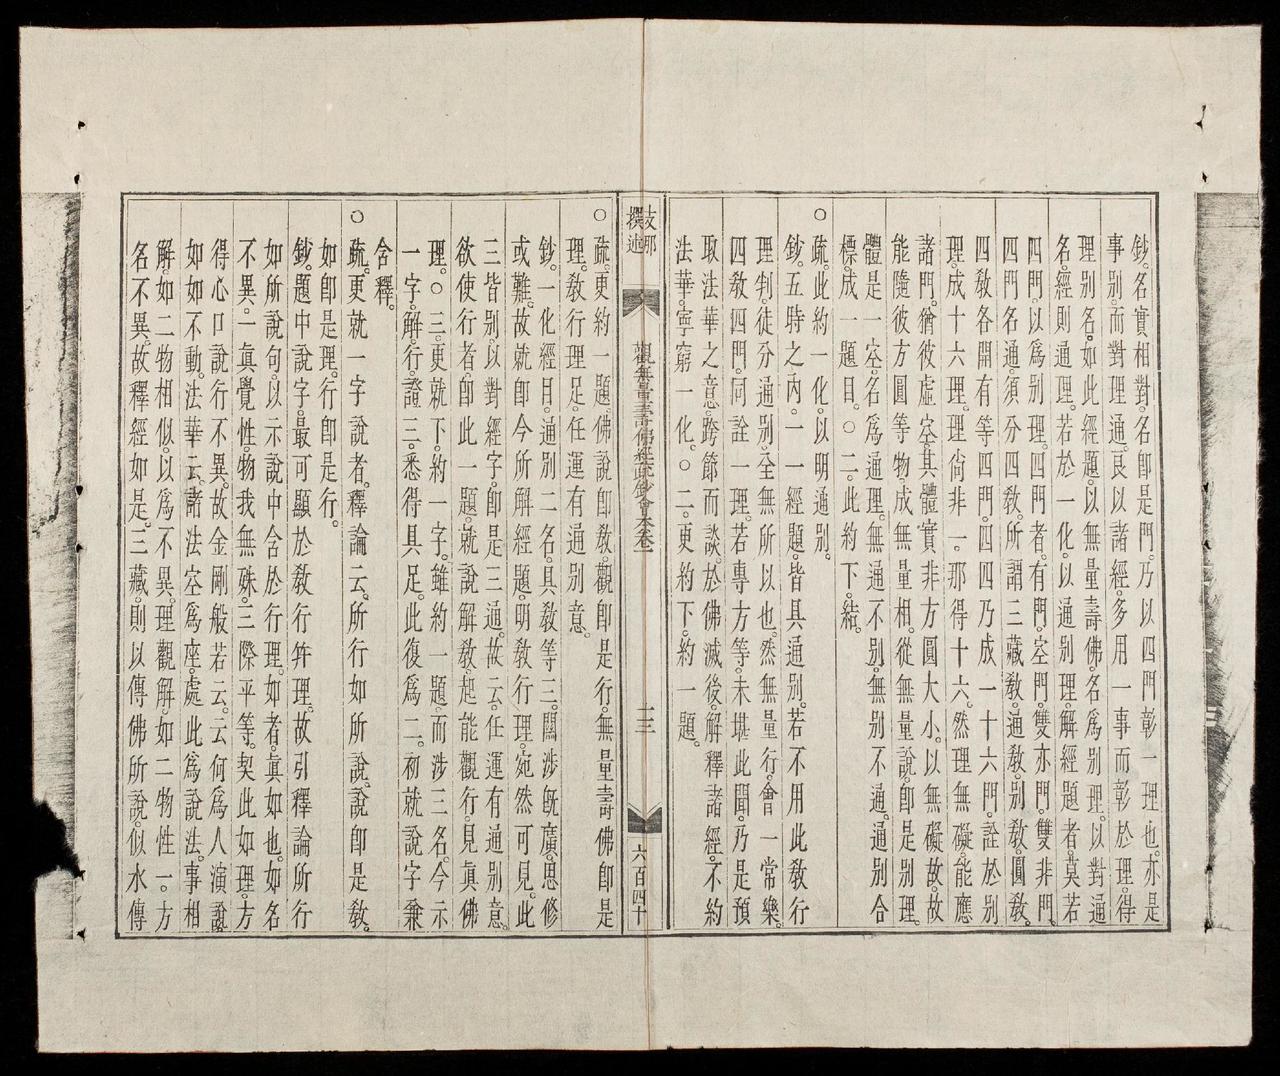 鈔。名實相對。名卽是門。乃以四門彰一理也。亦是
事別。而對理通。良以諸經。多用一事而彰於理。得
理別名。如此經題。以無量壽佛。名爲別理。以對通
名。經則通理。若於一化。以通別理。解經題者。莫若
四門。以爲別理。四門者。有門。空門。雙亦門。雙非門。
四門名通。須分四敎。所謂三藏敎。通敎。別敎。圓敎。
四敎各開有等四門。四四乃成一十六門。詮於別
理。成十六理。理尙非一。那得十六。然理無礙。能應
諸門。猶彼虛空。其體實非方圓大小。以無礙故。故
能隨彼方圓等物。成無量相。從無量說。卽是別理。
體是一空。名爲通理。無通不別。無別不通。通別合
標。成一題目。○二。此約下。結。
○疏。此約一化。以明通別。
鈔。五時之內。一一經題。皆具通別。若不用此敎行
理判。徒分通別。全無所以也。然無量行。會一常樂。
四敎四門。同詮一理。若專方等。未堪此聞。乃是預
取法華之意。跨節而談。於佛滅後。解釋諸經。不約
法華。寧窮一化。○二。更約下。約一題。
支那
撰述
觀無量壽佛經疏鈔會本卷一
二三
六百四十
○疏。更約一題。佛說卽敎。觀卽是行。無量壽佛卽是
理。敎行理足。任運有通別意。
鈔。一化經目。通別二名。具敎等三。關涉旣廣。思修
或難。故就卽今所解經題。明敎行理。宛然可見。此
三皆別。以對經字。卽是三通。故云。任運有通別意。
欲使行者。卽此一題。就說解敎。起能觀行。見眞佛
理。○三。更就下。約一字。雖約一題。而涉三名。今示
一字。解。行。證三。悉得具足。此復爲二。初就說字兼
含釋。
○疏。更就一字說者。釋論云。所行如所說。說卽是敎。
如卽是理。行卽是行。
鈔。題中說字。最可顯於敎行幷理。故引釋論所行
如所說句。以示說中含於行理。如者。眞如也。如名
不異。一眞覺性。物我無殊。三際平等。契此如理。方
得心口說行不異。故金剛般若云。云何爲人演說。
如如不動。法華云。諸法空爲座。處此爲說法。事相
解。如二物相似。以爲不異。理觀解。如二物性一。方
名不異。故釋經如是。三藏。則以傳佛所說。似水傳